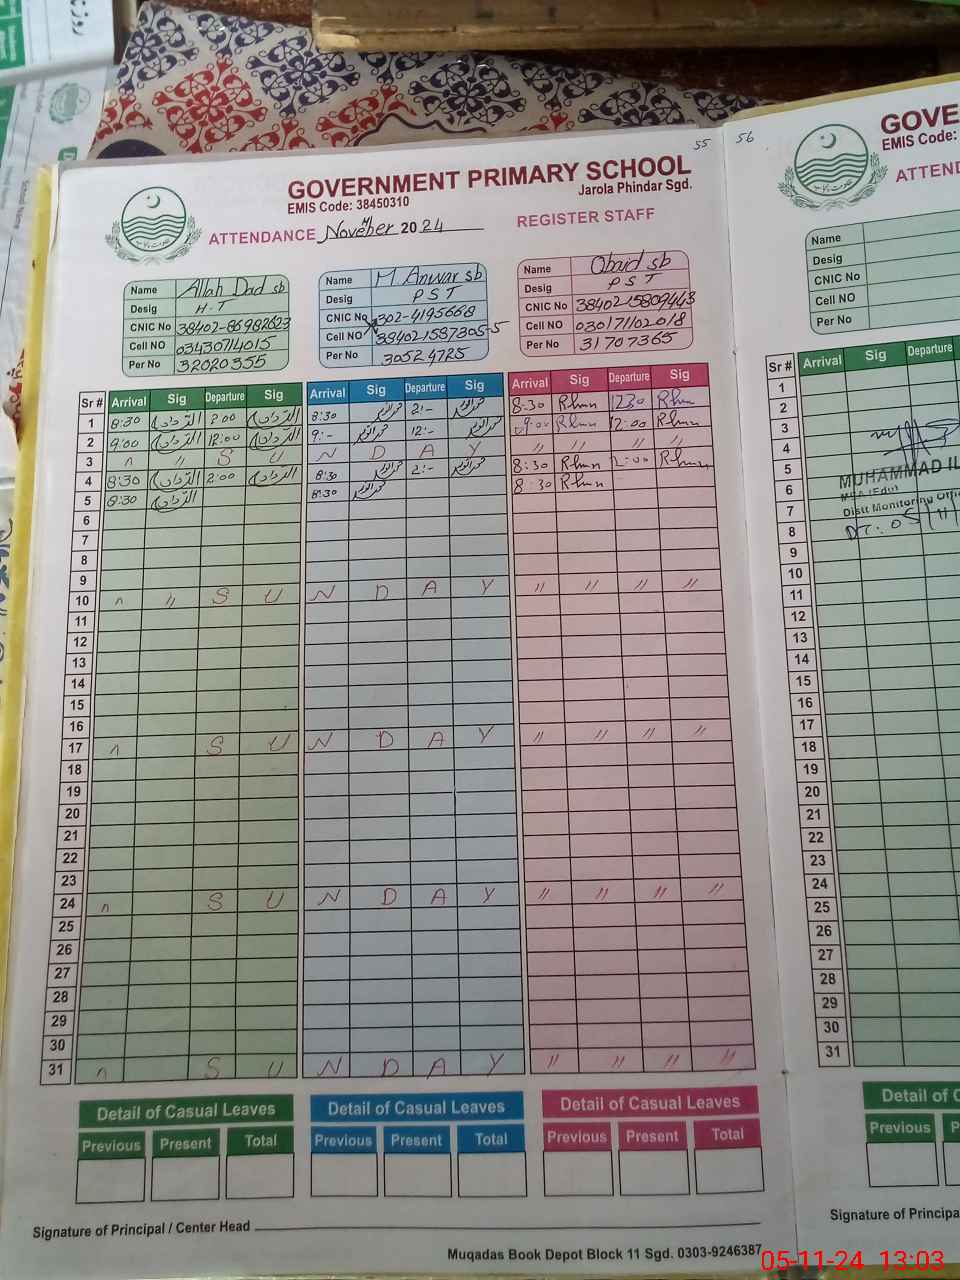 55 56
GOVERNMENT PRIMARY SCHOOL
Jarola Phindar Sgd.
EMIS Code: 38450310
ATTENDANCE November 2024 REGISTER STAFF
Name Allah Dad sb
Desig H.T
CNIC No 38402-86982623
Cell NO 03430714015
Per No 32020355
Name M Anwar sb
Desig PST
CNIC No 302-4195668
Cell NO 384021587305-5
Per No 30524725
Name Obaid sb
Desig PST
CNIC No 38402-15809443
Cell NO 030171102018
Per No 31707365
Sr # Arrival Sig Departure Sig Arrival Sig Departure Sig Arrival Sig Departure Sig
1 8:30 2:00 8:30 2:- 8:30 Rhmn 12:30 Rhmn
2 9:00 12:00 9:- 12:- 9:00 Rhmn 12:00 Rhmn
3 " " S U N D A Y " " " "
4 8:30 2:00 8:30 2:- 8:30 Rhmn 2:00 Rhmn
5 8:30 8:30 8:30 Rhmn
6
7
8
9
10 " " S U N D A Y " " " "
11
12
13
14
15
16
17 " S U N D A Y " " " "
18
19
20
21
22
23
24 " S U N D A Y " " " "
25
26
27
28
29
30
31 " S U N D A Y " " " "
Detail of Casual Leaves Detail of Casual Leaves Detail of Casual Leaves
Previous Present Total Previous Present Total Previous Present Total
Signature of Principal / Center Head
Muqadas Book Depot Block 11 Sgd. 0303-9246387
GOVE
EMIS Code:
ATTEND
Name
Desig
CNIC No
Cell NO
Per No
Sr # Arrival Sig Departure
1
2
3
4
5
MUHAMMAD IL
6
MEA (Edu)
7
Distt Monitoring Offic
8
DT: 05/11
9
10
11
12
13
14
15
16
17
18
19
20
21
22
23
24
25
26
27
28
29
30
31
Detail of C
Previous P
Signature of Principa
05-11-24 13:03